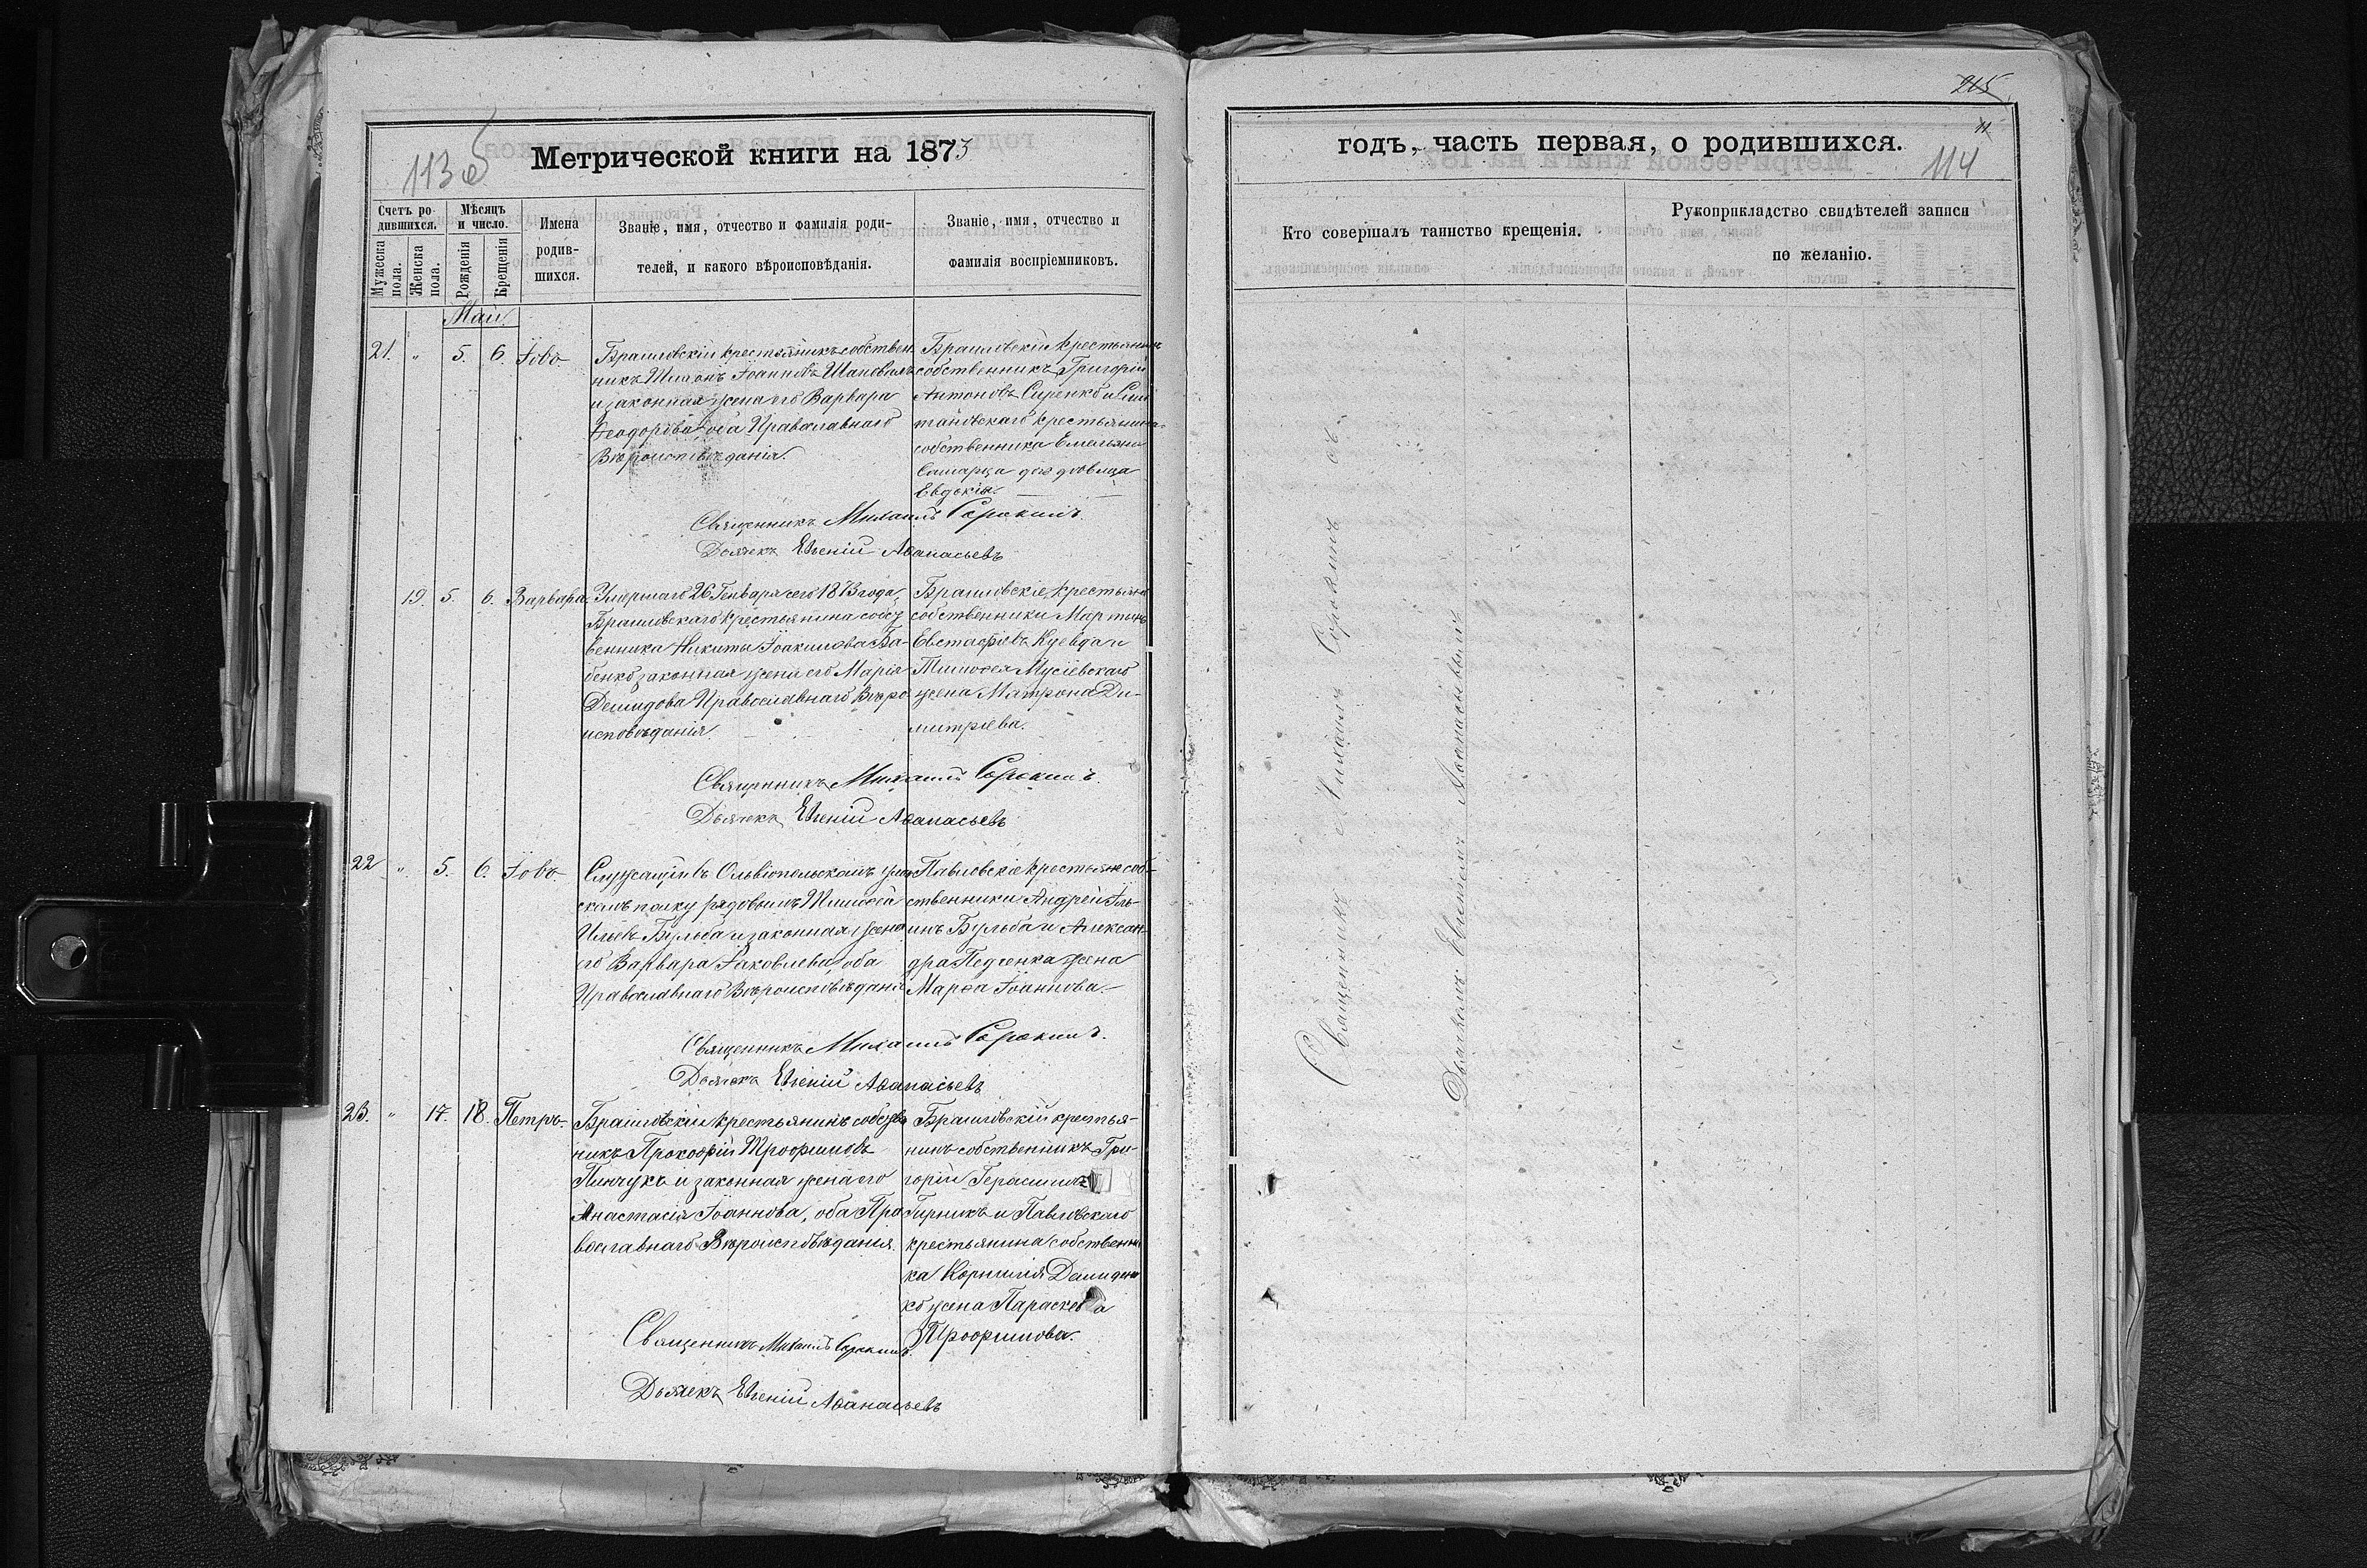 113 об
Метрической книги на 1873
Счетъ ро
дившихся.
Мужеска пола.
Женска пола.
Мѣсяцъ
и число.
Рожденія
Крещенія
Имена
родив-
шихся.
Званіе, имя, отчество и фамилія роди-
телей, и какого вѣроисповѣданія.
Званіе, имя, отчество и
фамилія воспріемниковъ.
Май
21. " 5. 6. Іовъ
Браиловскій крестьянинъ собствен
никъ Іоанновъ
и законная жена его Варвара
Ѳеодорова, оба Православнаго
Вѣроисповѣданія.
Браиловскій крестьянинъ
собственникъ Григорій
Антоновъ Сиренко и
крестьянина
собственника Емельяна
дѣвица
Евдокія.
Священникъ Михаилъ Сорокинъ.
Дьячекъ Евгеній Аѳанасьевъ
19. 5. 6. Варвара
Умершаго 26 Генваря сего 1873 года,
Браиловскаго крестьянина собст
венника Никиты Іоакимова Ба-
бенко законная жена его Марія
Демидова Православнаго Вѣро
исповѣданія.
Браиловскіе крестьяне
собственники Мартинъ
Евстафіевъ Куевда и
Тимоѳея Мусіевскаго
жена Матрона Ди-
митріева.
Священникъ Михаилъ Сорокинъ.
Дьячекъ Евгеній Аѳанасьевъ
22 " 5. 6. Іовъ
Служащій въ Ольвіопольскомъ улан
скомъ полку рядовымъ Тимоѳей
Ильевъ Бульба и законная жена
его Варвара Іаковлева, оба
Православнаго Вѣроисповѣданія
Павловскіе крестьяне соб-
ственники Андрей Иль-
инъ Бульба и Алексан-
дра Педченка жена
Марѳа Іоаннова.
Священникъ Михаилъ Сорокинъ.
Дьячекъ Евгеній Аѳанасьевъ
23. " 17. 18. Петръ.
Браиловскій крестьянинъ собств
никъ Прокофій Трофимовъ
Пинчукъ и законная жена его
Анастасія Іоаннова, оба Пра
вославнаго Вѣроисповѣданія.
Браиловскій крестья-
нинъ собственникъ Гри-
горій Герасимовъ
Гирникъ и Павловскаго
крестьянина собственни
ка Корнилія Демиден
ко жена Параскева
Трофимова.
Священникъ Михаилъ Сорокинъ.
Дьячекъ Евгеній Аѳанасьевъ
215
11
114
годъ, часть первая, о родившихся.
Кто совершалъ таинство крещенія.
Рукоприкладство свидѣтелей записи
по желанію.
Священникъ Михаилъ Сорокинъ съ
Дьячкомъ Евгеніемъ Аѳанасьевымъ